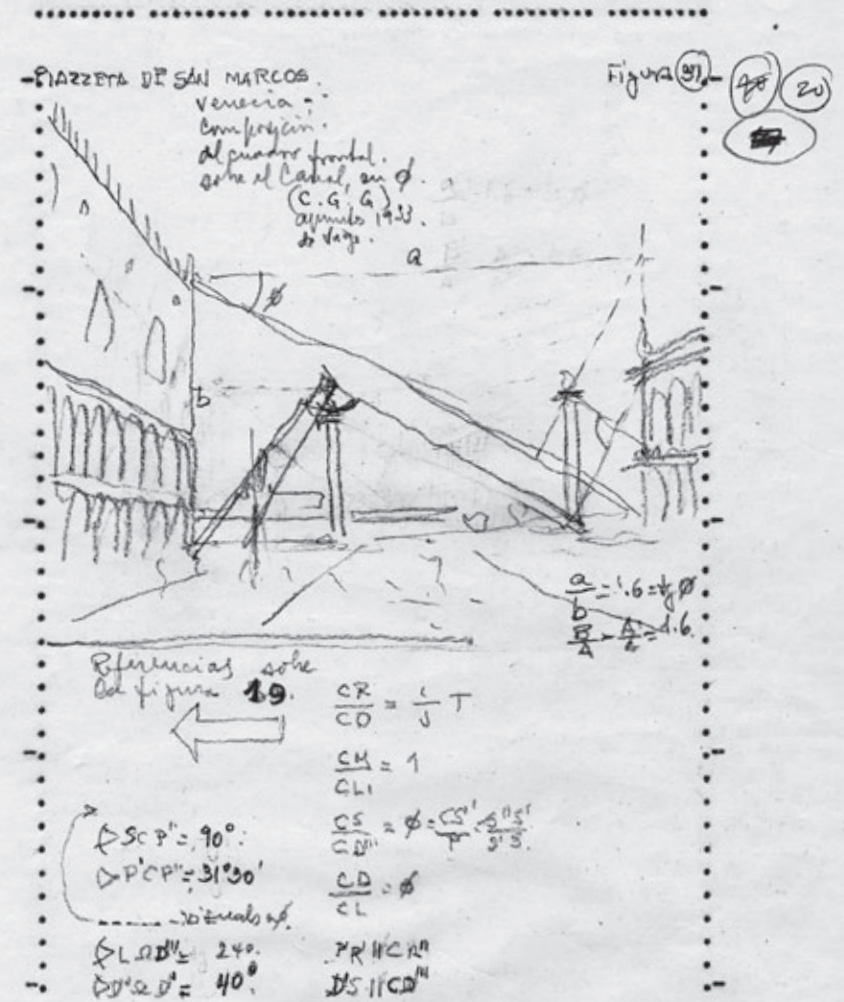 PIAZZETA DE SAN MARCOS.
Figura 31
20
Venecia -
composición.
del cuadro frontal.
sobre el Canal, en φ.
(C.G.G)
apuntes 1933.
de viaje.
a
φ
b
a/b = 1.6 = tg φ
B/A = A/a = 1.6.
Referencias sobre
la figura 19.
CR/CO =
CM/CL1 = 1
CS/CD''' = φ = CS'/P' = S''S'/S'S.
CD/CL = φ
SCP'' = 90°.
P'CP'' = 31°30'
LΩD''' = 24°.
D''ΩD' = 40°.
P'R || CD''
D'S || CD'''